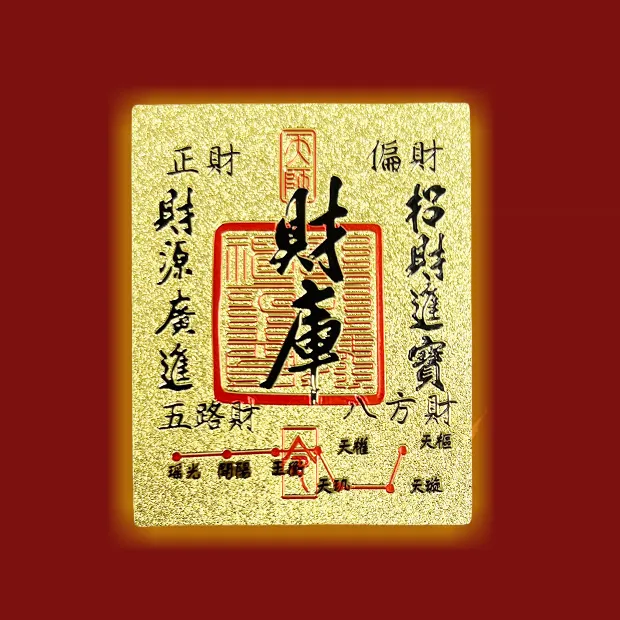 正財
天師
偏財
招財進寶
財庫
財源廣進
五路財
八方財
令
天權
天樞
瑤光
開陽
玉衡
天璣
天璇